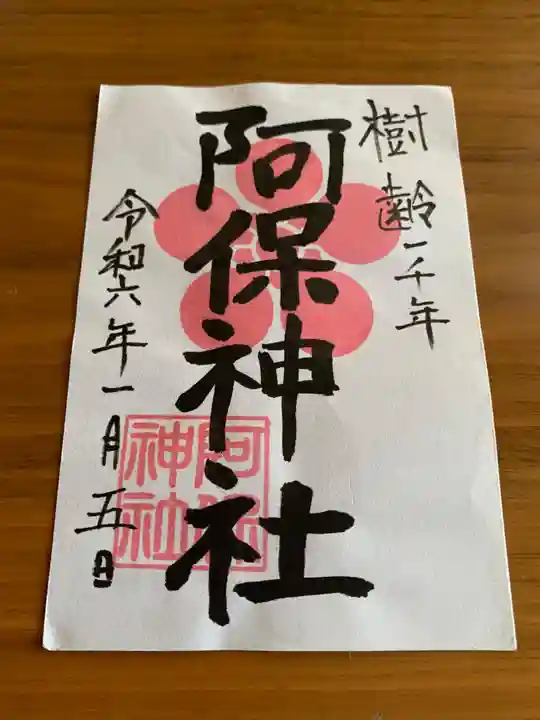 樹齢一千年
阿保神社
令和六年一月五日
阿保
神社